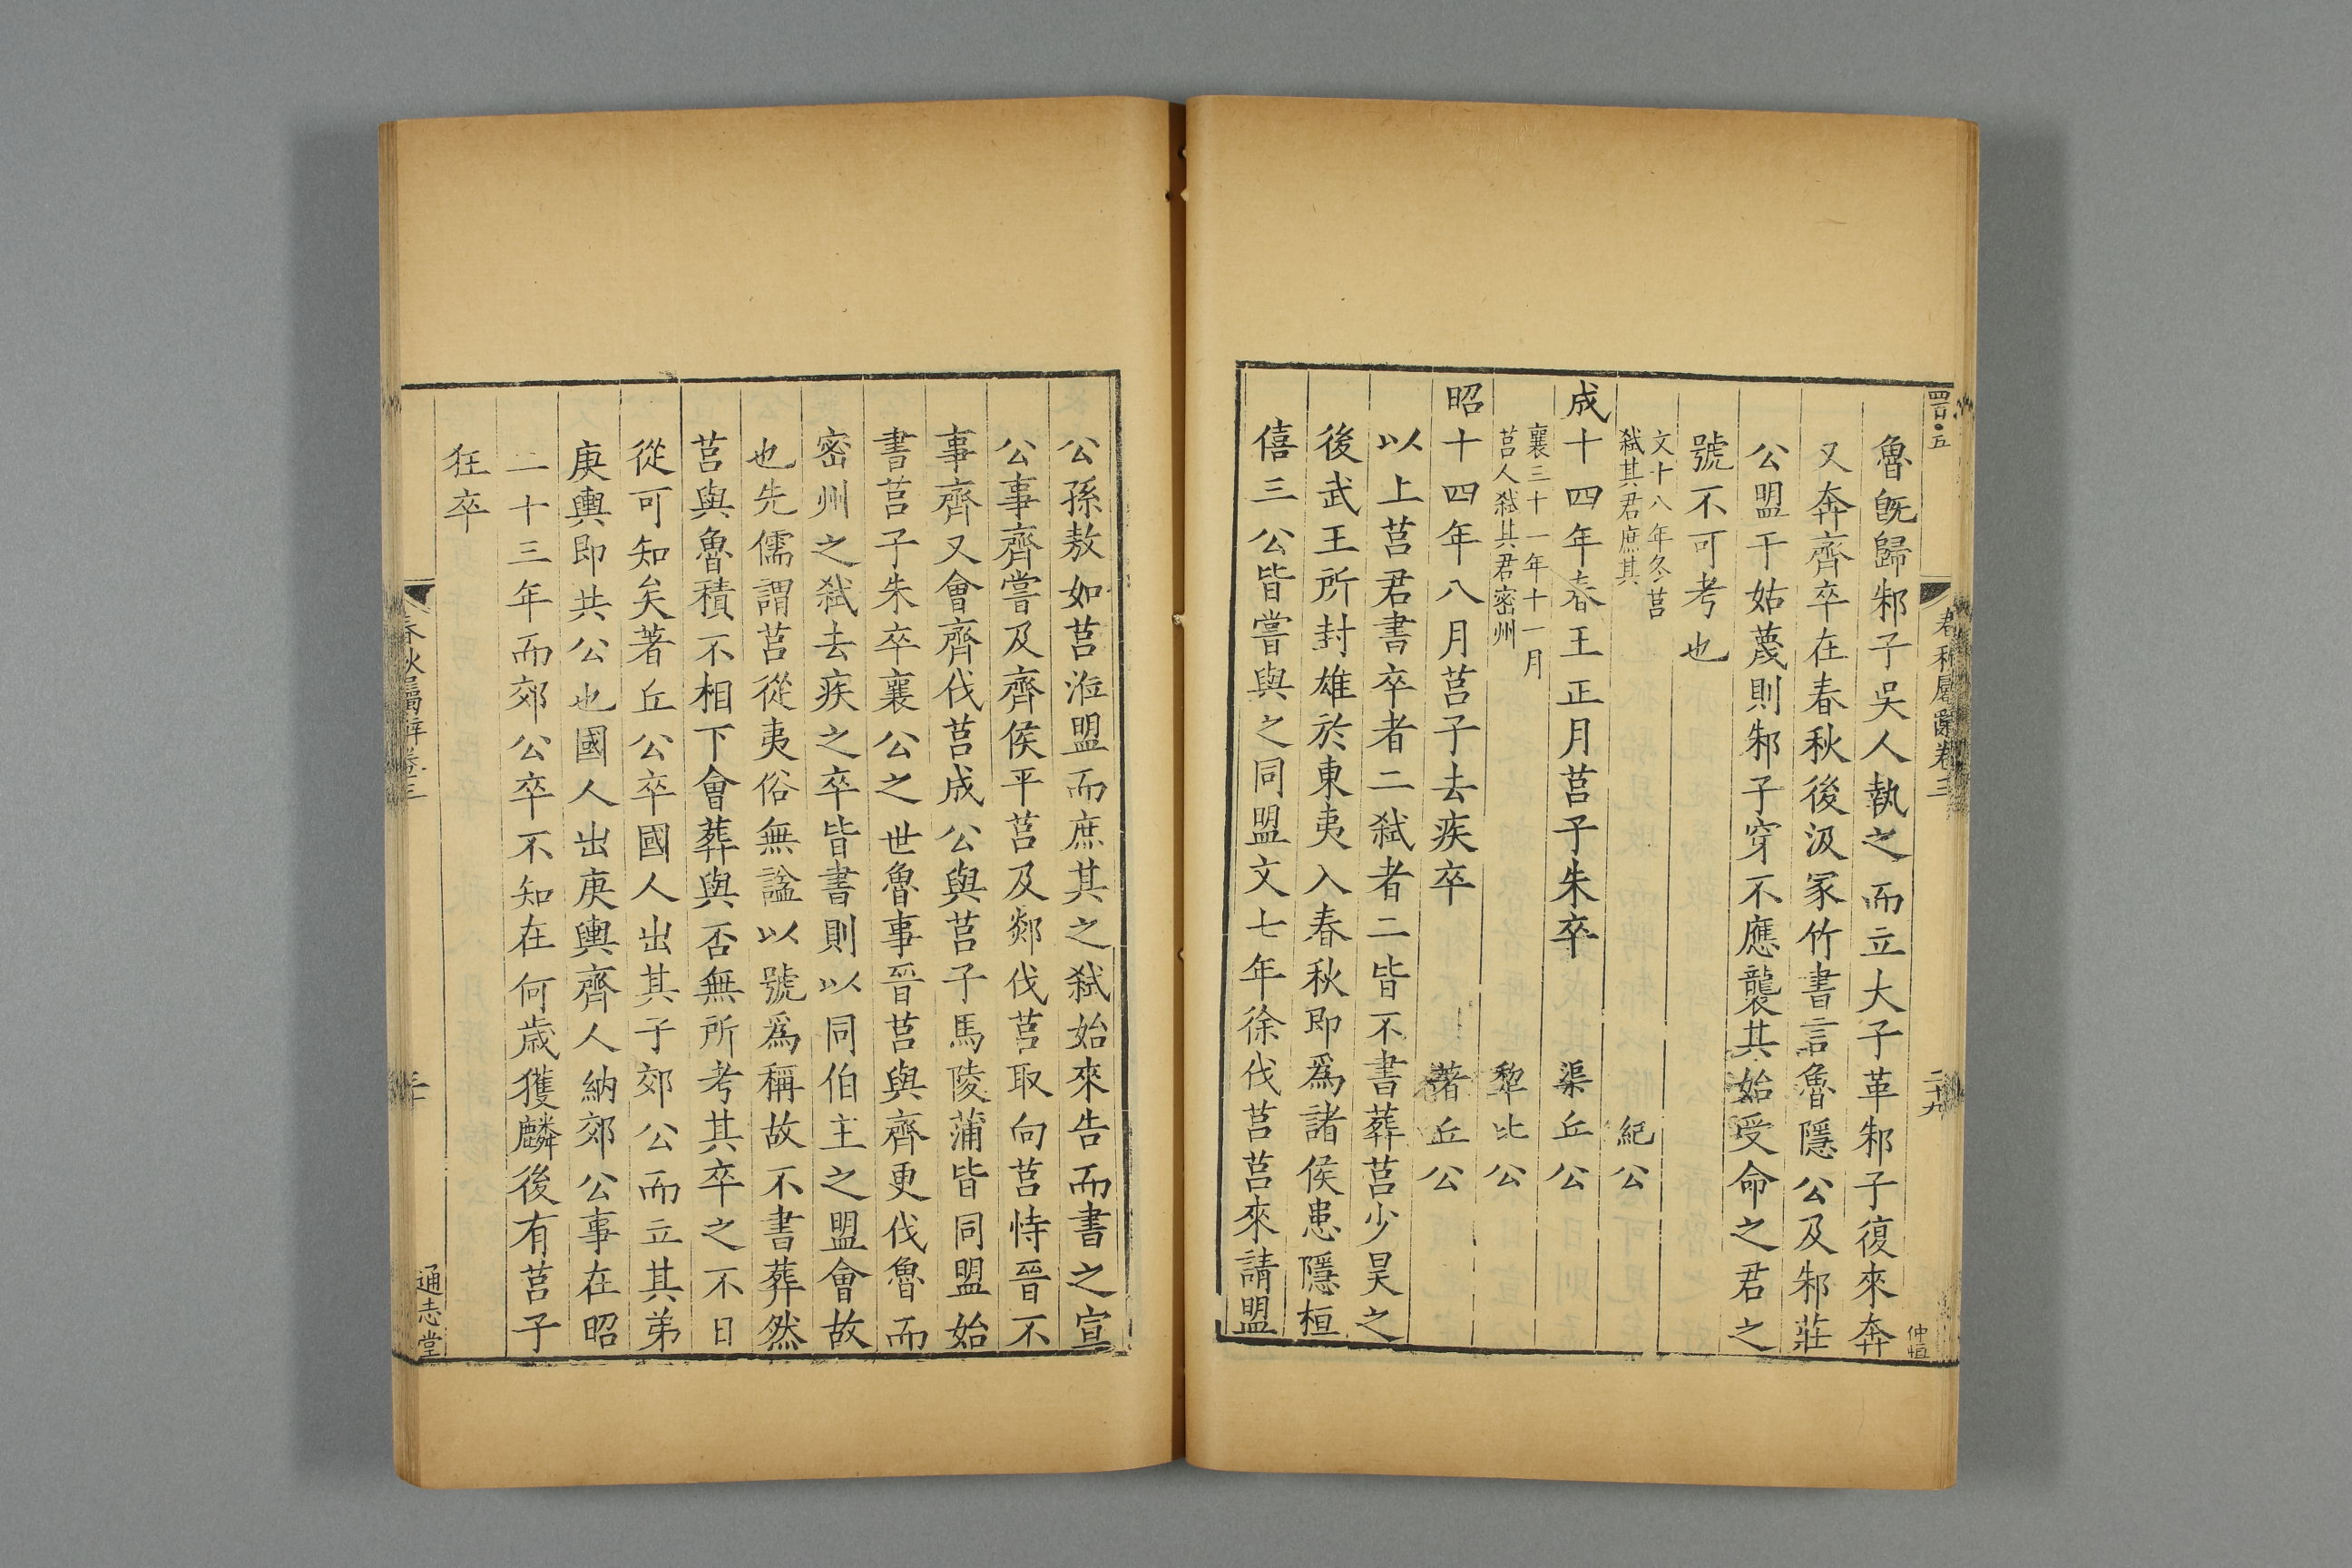 春秋屬辭卷三
二十九
仲恒
魯旣歸邾子吳人執之而立大子革邾子復來奔
又奔齊卒在春秋後汲冢竹書言魯隱公及邾莊
公盟于姑蔑則邾子穿不應襲其始受命之君之
號不可考也
文十八年冬莒
弑其君庶其
紀公
成十四年春王正月莒子朱卒 渠丘公
襄三十一年十一月
莒人弑其君密州
犂比公
昭十四年八月莒子去疾卒 著丘公
以上莒君書卒者二弑者二皆不書葬莒少昊之
後武王所封雄於東夷入春秋即爲諸侯患隱桓
僖三公皆嘗與之同盟文七年徐伐莒莒來請盟
公孫敖如莒涖盟而庶其之弑始來告而書之宣
公事齊嘗及齊侯平莒及郯伐莒取向莒恃晉不
事齊又會齊伐莒成公與莒子馬陵蒲皆同盟始
書莒子朱卒襄公之世魯事晉莒與齊更伐魯而
密州之弑去疾之卒皆書則以同伯主之盟會故
也先儒謂莒從夷俗無謚以號爲稱故不書葬然
莒與魯積不相下會葬與否無所考其卒之不日
從可知矣著丘公卒國人出其子郊公而立其弟
庚輿即共公也國人出庚輿齊人納郊公事在昭
二十三年而郊公卒不知在何歲獲麟後有莒子
狂卒
春秋屬辭卷三
三十
通志堂